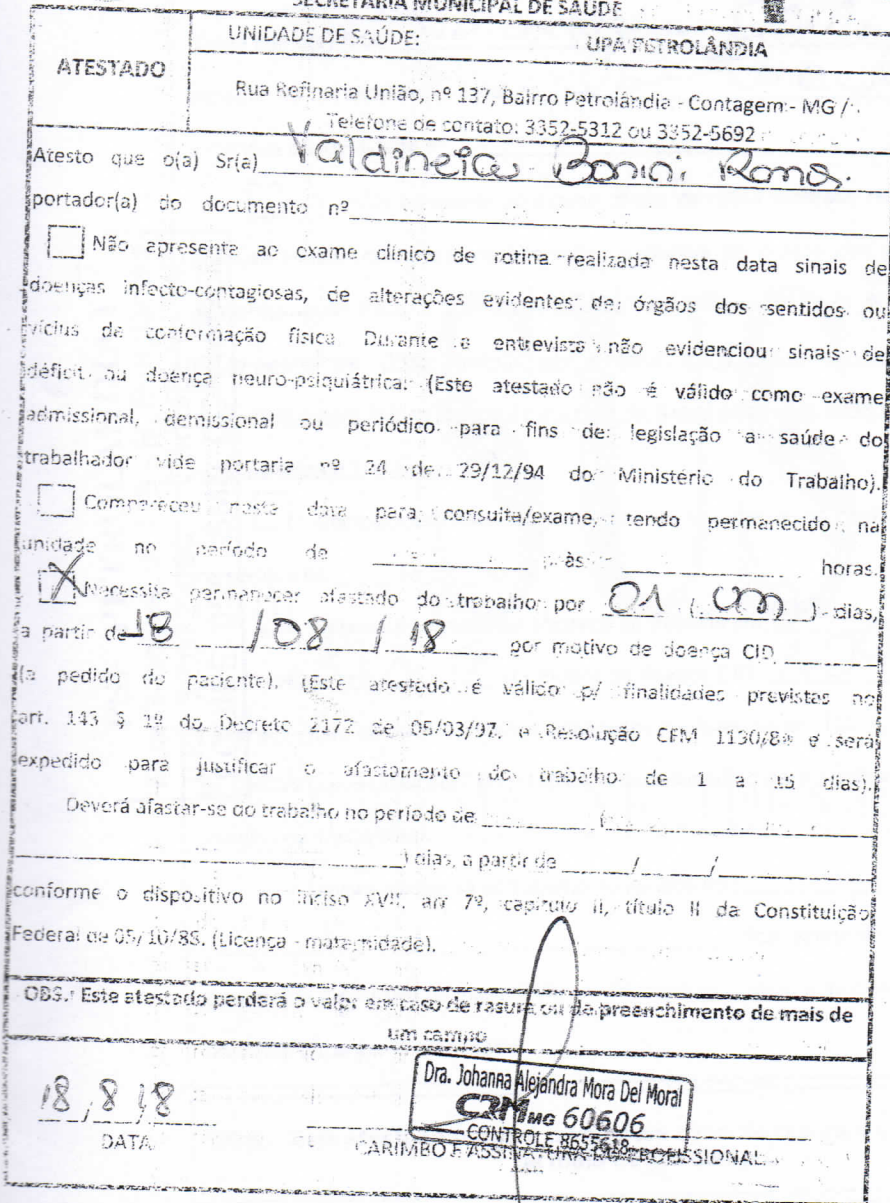 SECRETARIA MUNICIPAL DE SAÚDE
ATESTADO
UNIDADE DE SAÚDE: UPA PETROLÂNDIA
Rua Refinaria União, nº 137, Bairro Petrolândia - Contagem - MG /
Telefone de contato: 3352-5312 ou 3352-5692
Atesto que o(a) Sr(a) Valdineia
portador(a) do documento nº
Não apresenta ao exame clínico de rotina realizada nesta data sinais de
doenças infecto-contagiosas, de alterações evidentes de órgãos dos sentidos ou
vícius de conformação física. Durante a entrevista não evidenciou sinais de
déficit ou doença neuro-psiquiátrica. (Este atestado não é válido como exame
admissional, demissional ou periódico para fins de legislação a saúde do
trabalhador vide portaria nº 24 de 29/12/94 do Ministério do Trabalho).
Compareceu nesta data para consulta/exame, tendo permanecido na
unidade no período de às horas
X Necessita permanecer afastado do trabalho por 01 (um) dias,
a partir de 18 /08 / 18 por motivo de doença CID
(a pedido do paciente). (Este atestado é válido p/ finalidades previstas no
art. 143 § 1º do Decreto 2172 de 05/03/97, e Resolução CFM e será
expedido para justificar o afastamento do trabalho de 1 a 15 dias).
Deverá afastar-se do trabalho no período de (
) dias, a partir de / /
conforme o dispositivo no inciso XVII, art 7º, capítulo II, título II da Constituição
Federal de (Licença - maternidade).
OBS.: Este atestado perderá o valor em caso de rasura ou de preenchimento de mais de
um campo
18 / 8 / 18
DATA
Dra. Johanna Alejandra Mora Del Moral
CRMMG 60606
CONTROLE 8655618
CARIMBO E ASSINATURA DO PROFISSIONAL